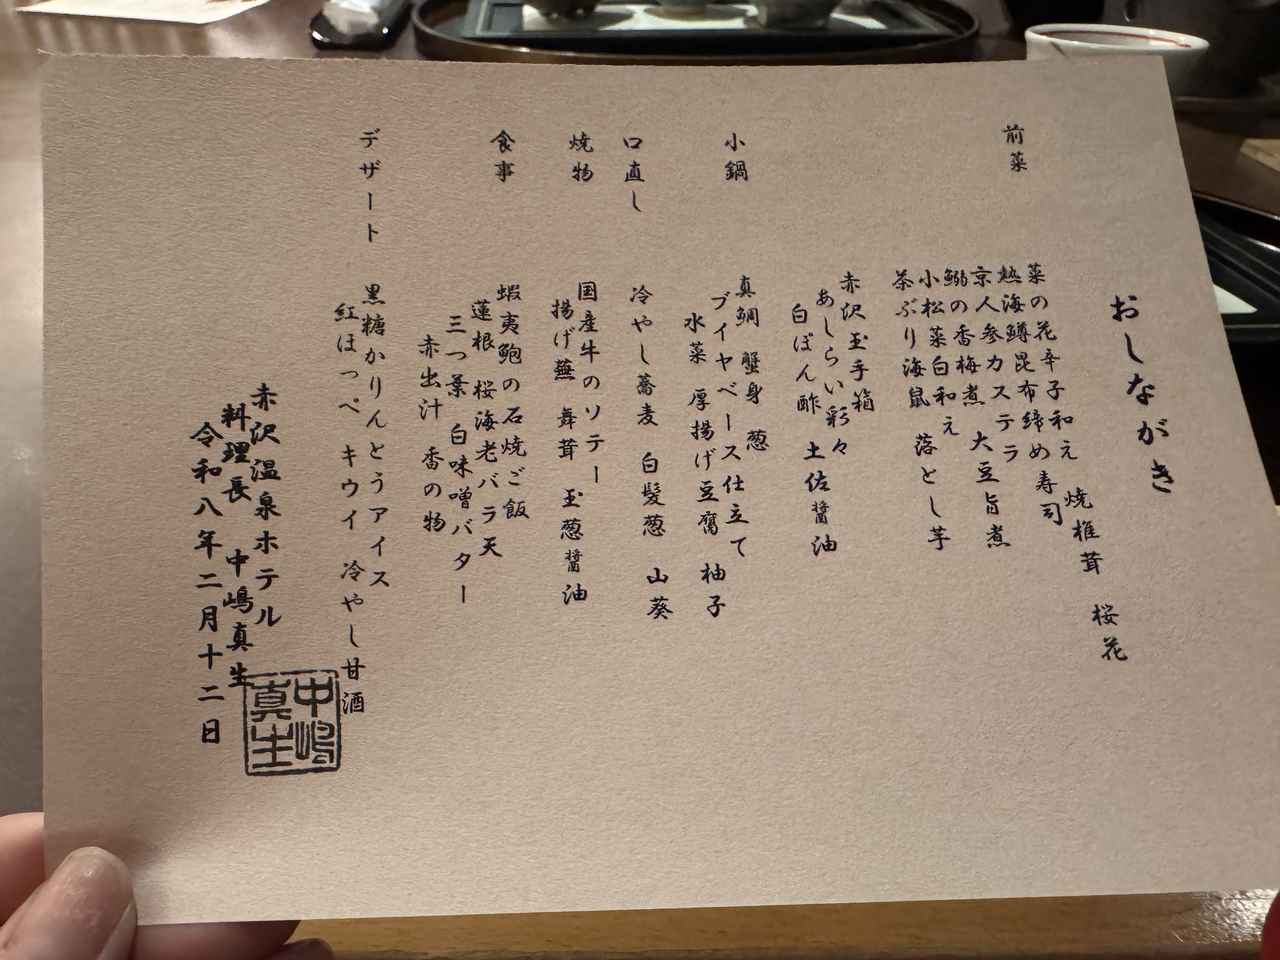 おしながき
前菜
菜の花辛子和え 焼椎茸 桜花
熱海鱒昆布締め寿司
京人参カステラ
鰯の香梅煮 大豆旨煮
小松菜白和え
茶ぶり海鼠 落とし芋
赤沢玉手箱
あしらい彩々
白ぽん酢 土佐醤油
小鍋
真鯛 蟹身 葱
ブイヤベース仕立て
水菜 厚揚げ豆腐 柚子
口直し
冷やし蕎麦 白髪葱 山葵
焼物
国産牛のソテー
揚げ蕪 舞茸 玉葱醤油
食事
蝦夷鮑の石焼ご飯
蓮根 桜海老バラ天
三つ葉 白味噌バター
赤出汁 香の物
デザート
黒糖かりんとうアイス
紅ほっぺ キウイ 冷やし甘酒
赤沢温泉ホテル
料理長 中嶋真生
令和八年二月十二日
中嶋真生